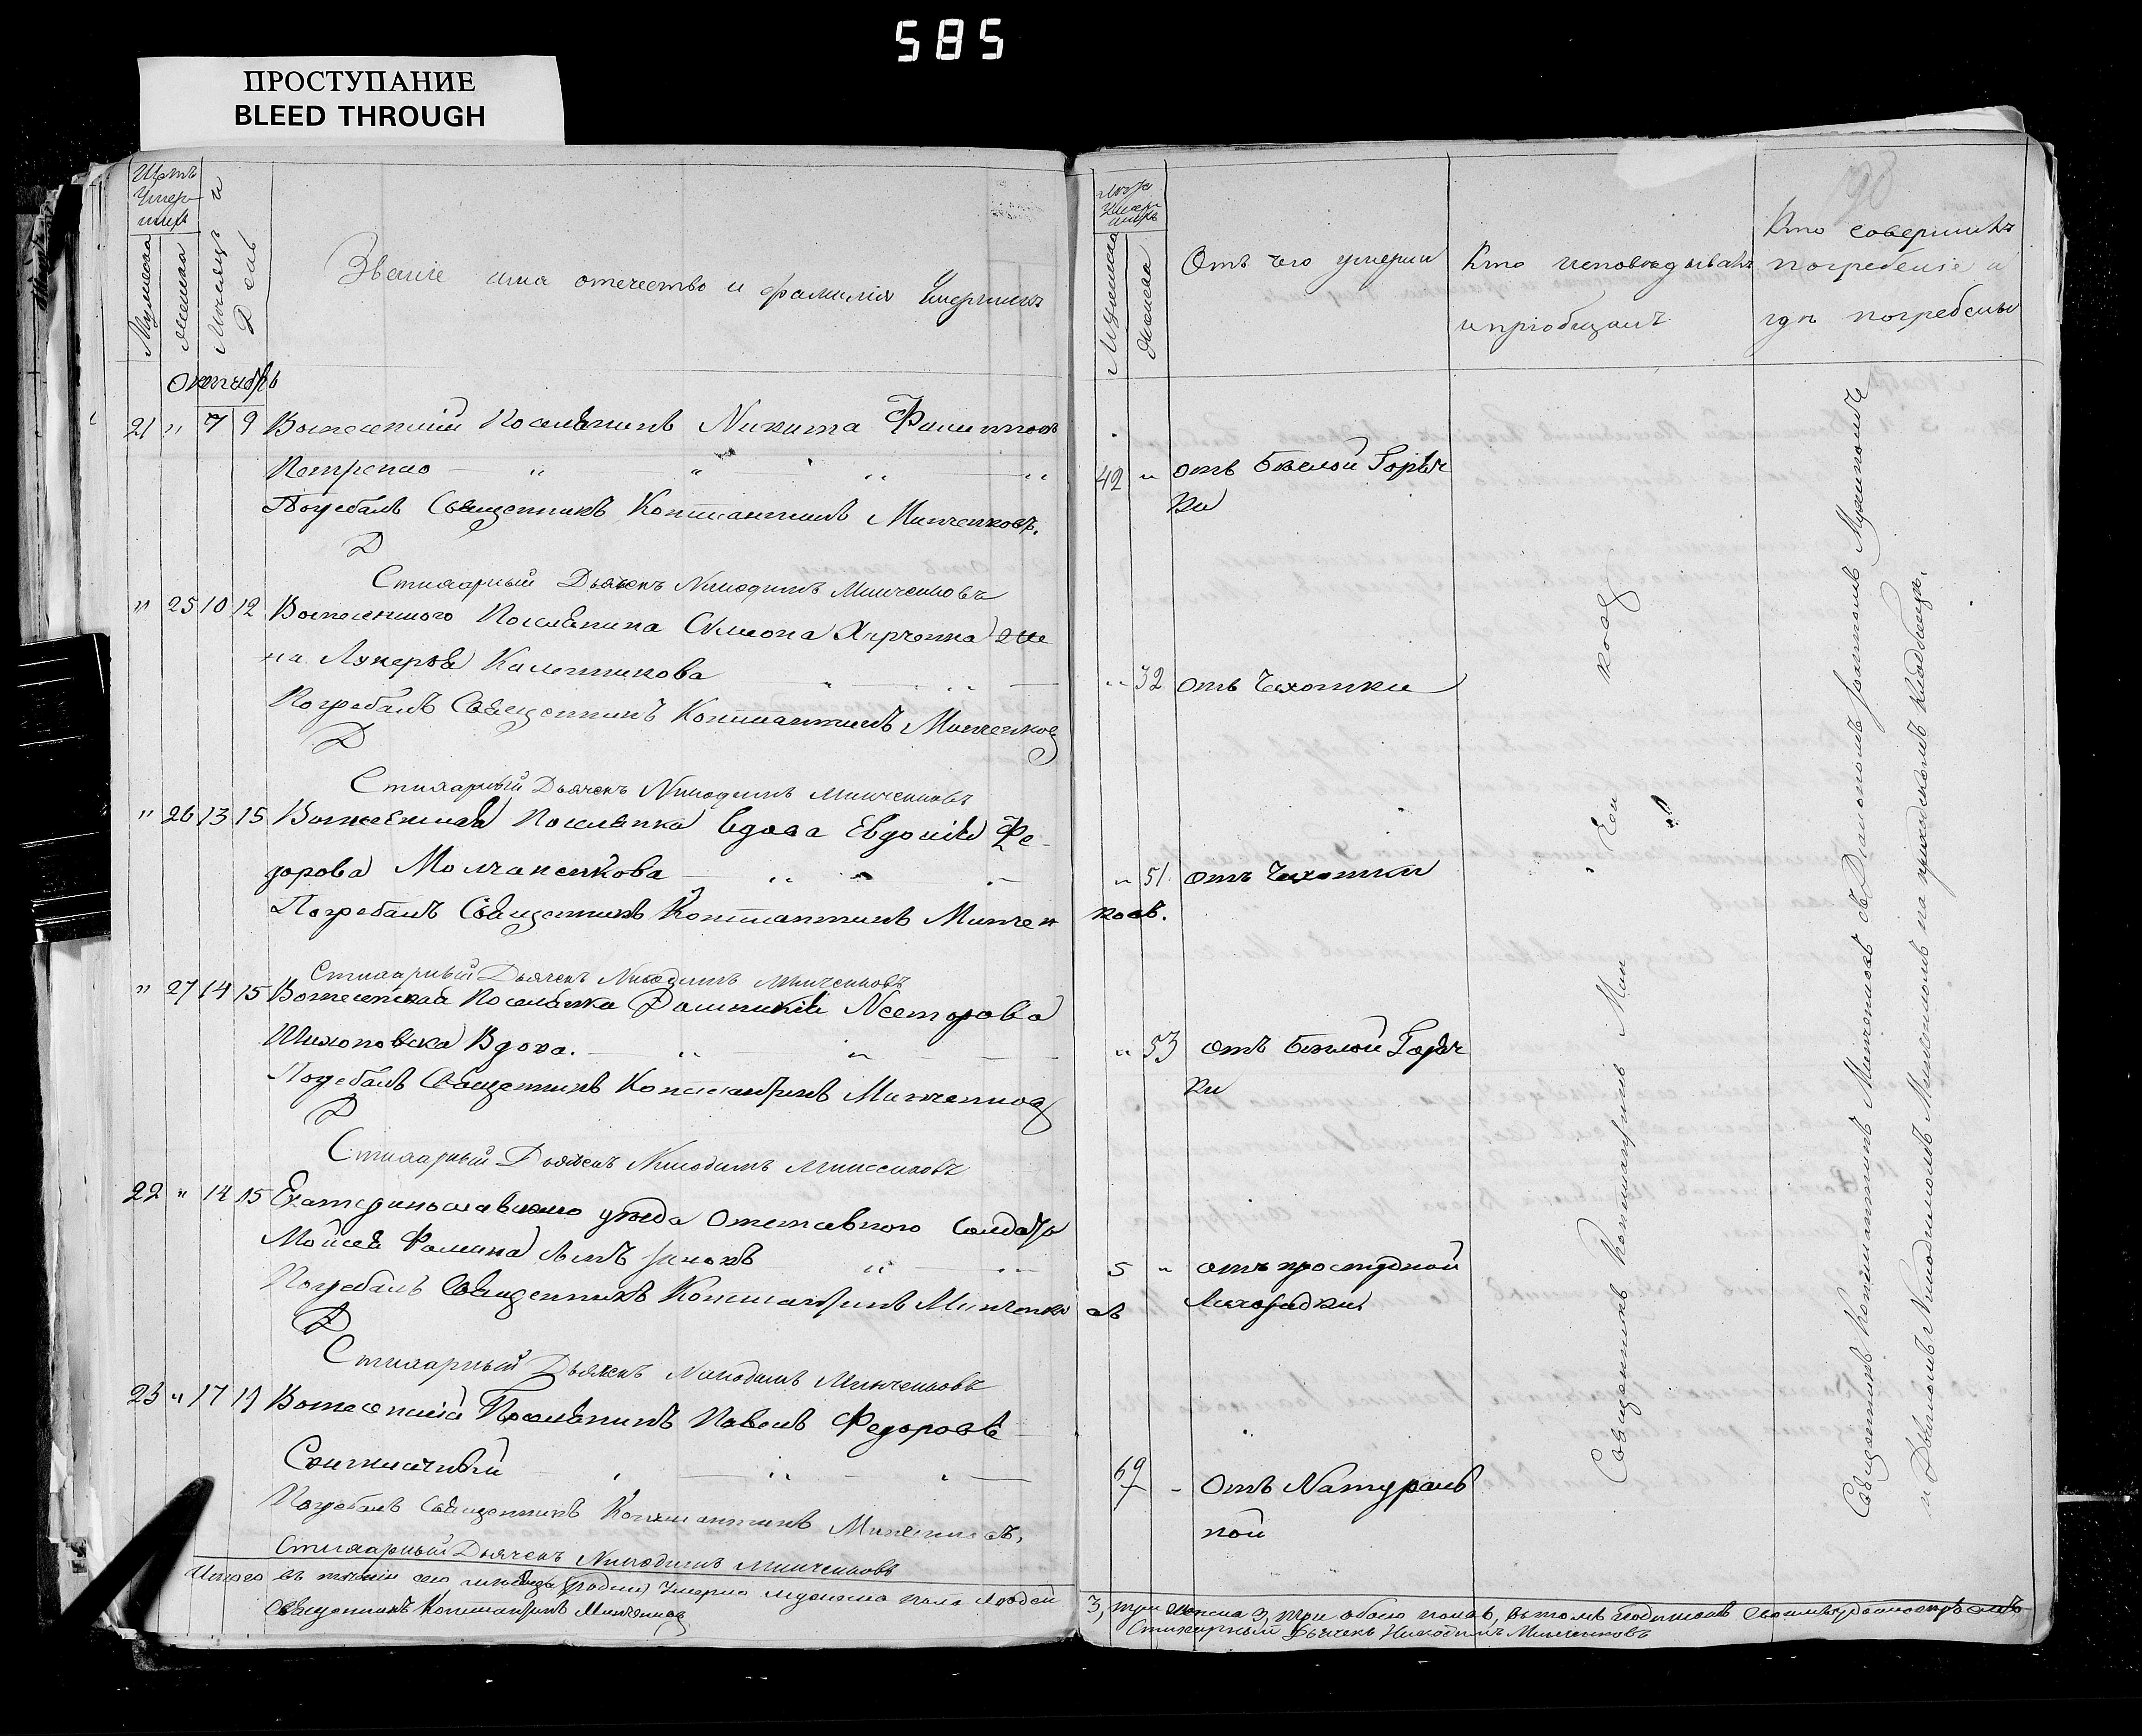 585
ПРОСТУПАНИЕ
BLEED THROUGH
Счетъ
Умер-
шихъ
Мужеска
Женска
Месяцъ и
День
Званіе имя отечество и фамилія Умершихъ
Октябрь
21 " 7 9 Вознесенскій Поселянинъ Никита Филиповъ
Петренко " " " "
Погребалъ Священникъ Константинъ Минченковъ.
Стихарный Дьячекъ Никодимъ Минченковъ
" 25 10 12 Вознесенскаго Поселянина Симеона Харченка же
на Лукерья
Погребалъ Священникъ Константинъ Минченков
Стихарный Дьячекъ Никодимъ Минченковъ
" 26 13 15 Вознесенская Поселянка вдова Евдокія Фе-
дорова Молчаненкова
Погребалъ Священникъ Константинъ Минчен
Стихарный Дьячекъ Никодимъ Минченковъ
" 27 14 15 Вознесенская Поселянка Домникія Несторова
Вдова.
Погребалъ Священникъ Константинъ Минченков
Стихарный Дьячекъ Никодимъ Минченковъ
22 " 14 15 Екатеринославскаго уезда Отставного Солдата
Мойсея Фомина сынъ
Погребалъ Священникъ Константинъ Минченко
Стихарный Дьячекъ Никодимъ Минченковъ
23 " 17 19 Вознесенскій Поселянинъ Павелъ Федоровъ
Погребалъ Священникъ Константинъ Минченковъ,
Стихарный Дьячекъ Никодимъ Минченковъ
Итого въ теченіи сего месяца Умерло мужеска пола людей
Священникъ Константинъ Минченков
Лета
Умер-
шихъ
Мужеска
Женска
Отъ чего умерли
Кто исповедывалъ
и пріобщалъ
98
Кто совершилъ
погребеніе и
где погребены
42 " отъ Белой Горяч
ки
" 32 отъ Чахотки
" 51 отъ Чахотки
ковъ.
" 53 отъ Белой Горяч
ки
5 " отъ простудной
въ Лихорадки
67 - Отъ Натураль
ной
Священникъ Константинъ Мин ченков
Священникъ Константинъ Минченковъ съ Дьякономъ
и Дьячкомъ Никодимомъ Минченковымъ на приходскомъ кладбище.
3, три женска 3, три обоего пола 6, въ томъ
Стихарный Дьячекъ Никодимъ Минченковъ